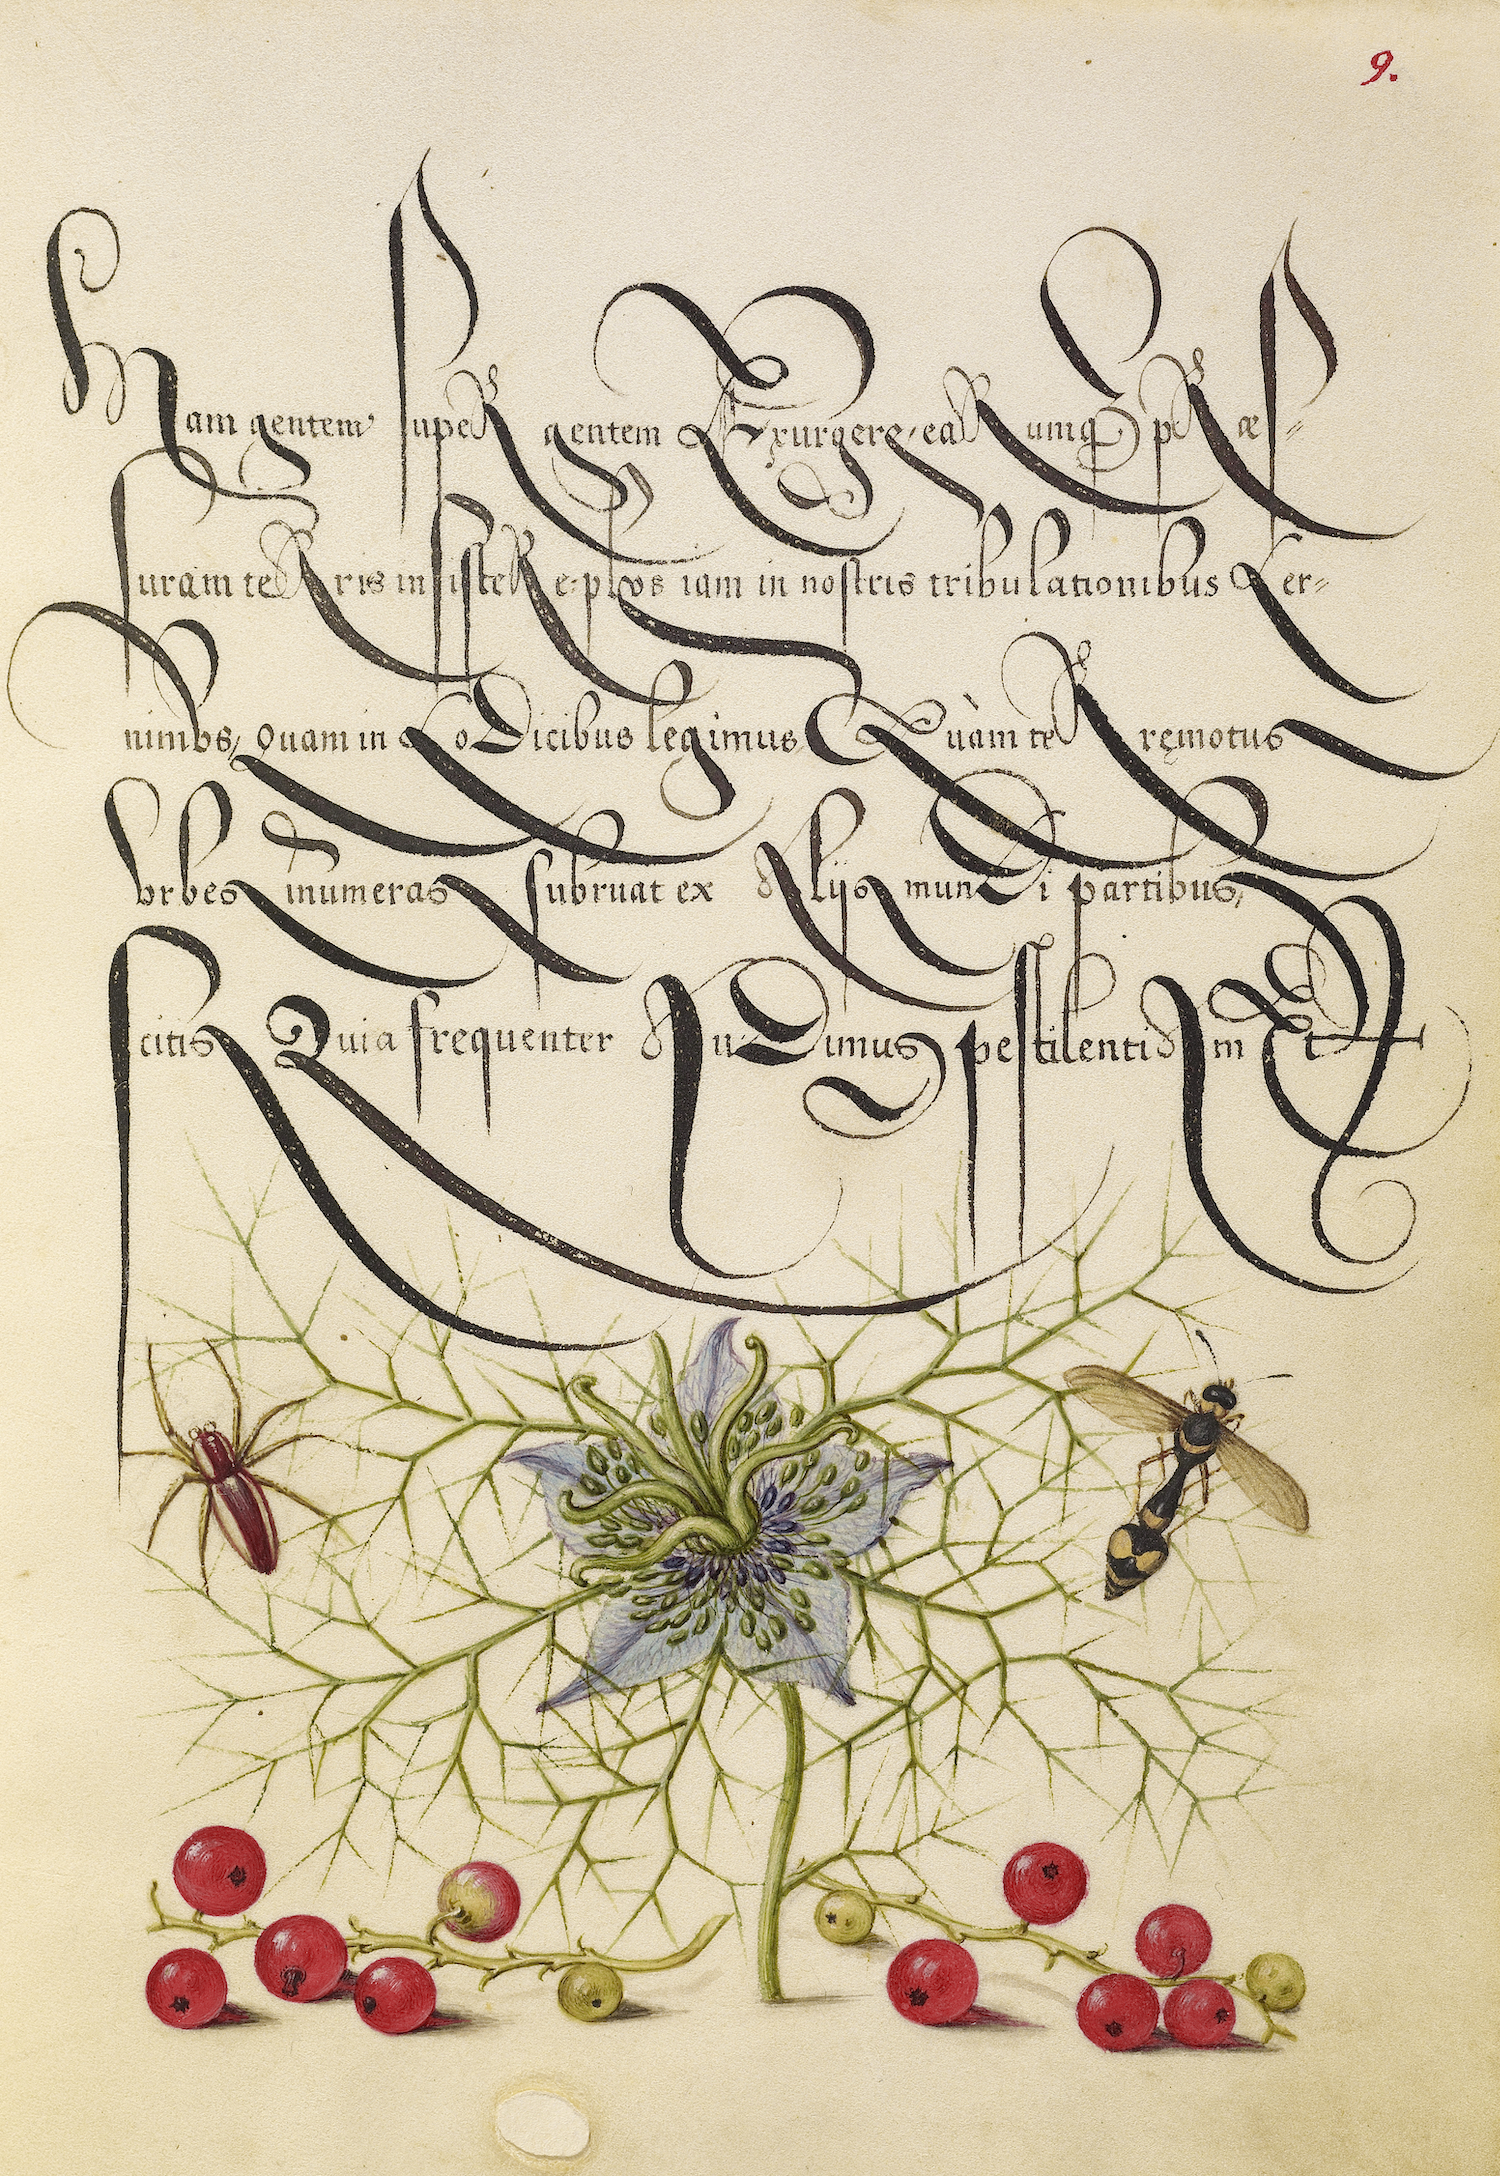 9.
Nam gentem super gentem Exurgere, earumq́ præs=
suram terris insistere, plvs iam in nostris tribulationibus Cer=
nimvs, quam in Codicibus legimus Quàm terręmotus
vrbes inumeras subruat ex Alijs mundi partibus,
scitis Quia frequenter Audimus pestilentiam Et